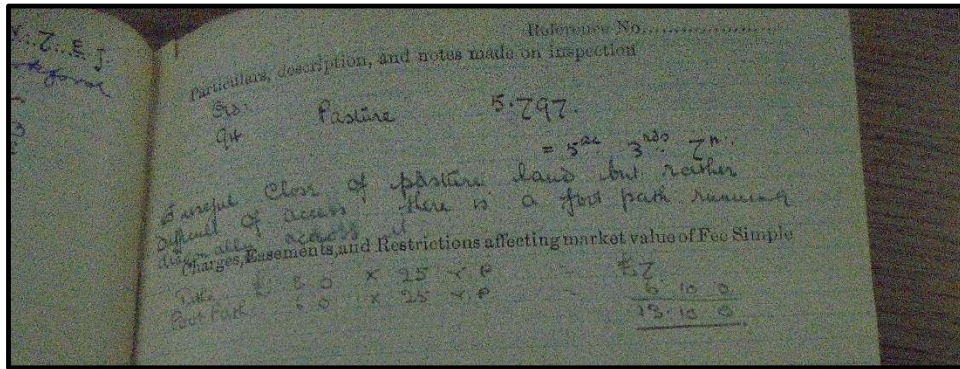 Reference No.
Particulars, description, and notes made on inspection
94 Pasture 5.797.
= 5ac 3rds 7p.
A useful Close of pasture land but rather
difficult of access there is a foot path running
diagonally across it
Charges, Easements, and Restrictions affecting market value of Fee Simple
Tithe x 25 Y P £7
Foot Path x 25 Y P 6 10 0
13.10 0